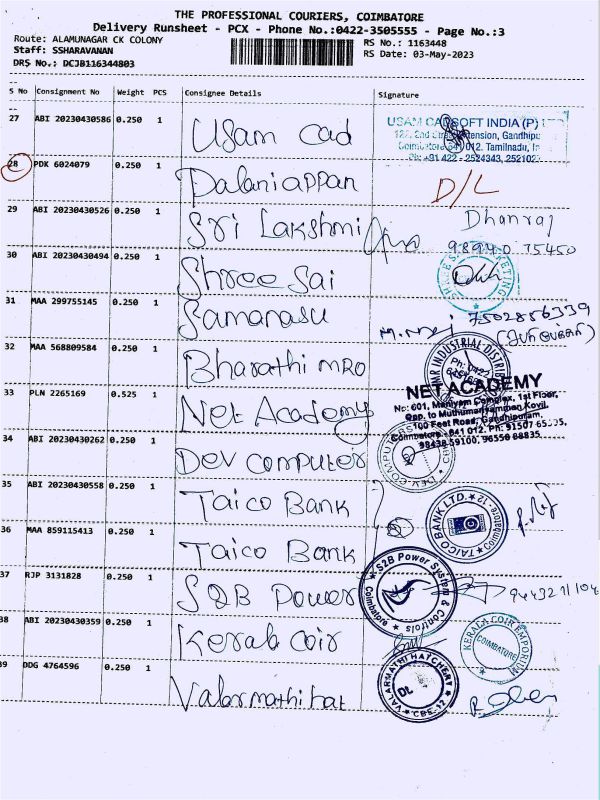 THE PROFESSIONAL COURIERS, COIMBATORE
Delivery Runsheet - PCX - Phone No.:0422-3505555 - Page No.:3
Route: ALAMUNAGAR CK COLONY
RS No.: 1163448
Staff: SSHARAVANAN
RS Date: 03-May-2023
DRS No.: DCJB116344803
S No Consignment No Weight PCS Consignee Details Signature
27 ABI 20230430586 0.250 1 Usam Cad
USAM CADSOFT INDIA (P)
Extension, Gandhipu
Coimbatore 641 012. Tamilnadu, In
Ph: +91 422 - 2524343, 252102
28 PDK 6024079 0.250 1 Palaniappan D/L
29 ABI 20230430526 0.250 1 Sri Lakshmi Dhanraj
98940 75450
30 ABI 20230430494 0.250 1 Shree Sai
31 MAA 299755145 0.250 1 Samanasu 7502856339
32 MAA 568809584 0.250 1 Bharathi MRO
INDUSTRIAL DISTRIB
33 PLN 2265169 0.525 1 Net Academy
NET ACADEMY
No: 601, Maniyam Complex, 1st Floor,
Opp. to Muthumariyamman Kovil,
100 Feet Road, Gandhipuram,
Coimbatore - 641 012. Ph: 91507 65535,
98438 59100, 96550 88835
34 ABI 20230430262 0.250 1 Dev Computer
DEV COMPUTERS
35 ABI 20230430558 0.250 1 Taico Bank
TAICO BANK LTD.
Coimbatore-12
36 MAA 859115413 0.250 1 Taico Bank
37 RJP 3131828 0.250 1 S2B Power
S2B Power System & Controls
Coimbatore
38 ABI 20230430359 0.250 1 Kerala Coir
KERALA COIR EMPORIUM
COIMBATORE
39 DDG 4764596 0.250 1 Valarmathi hat
VALARMATHI HATCHERY
CBE-12